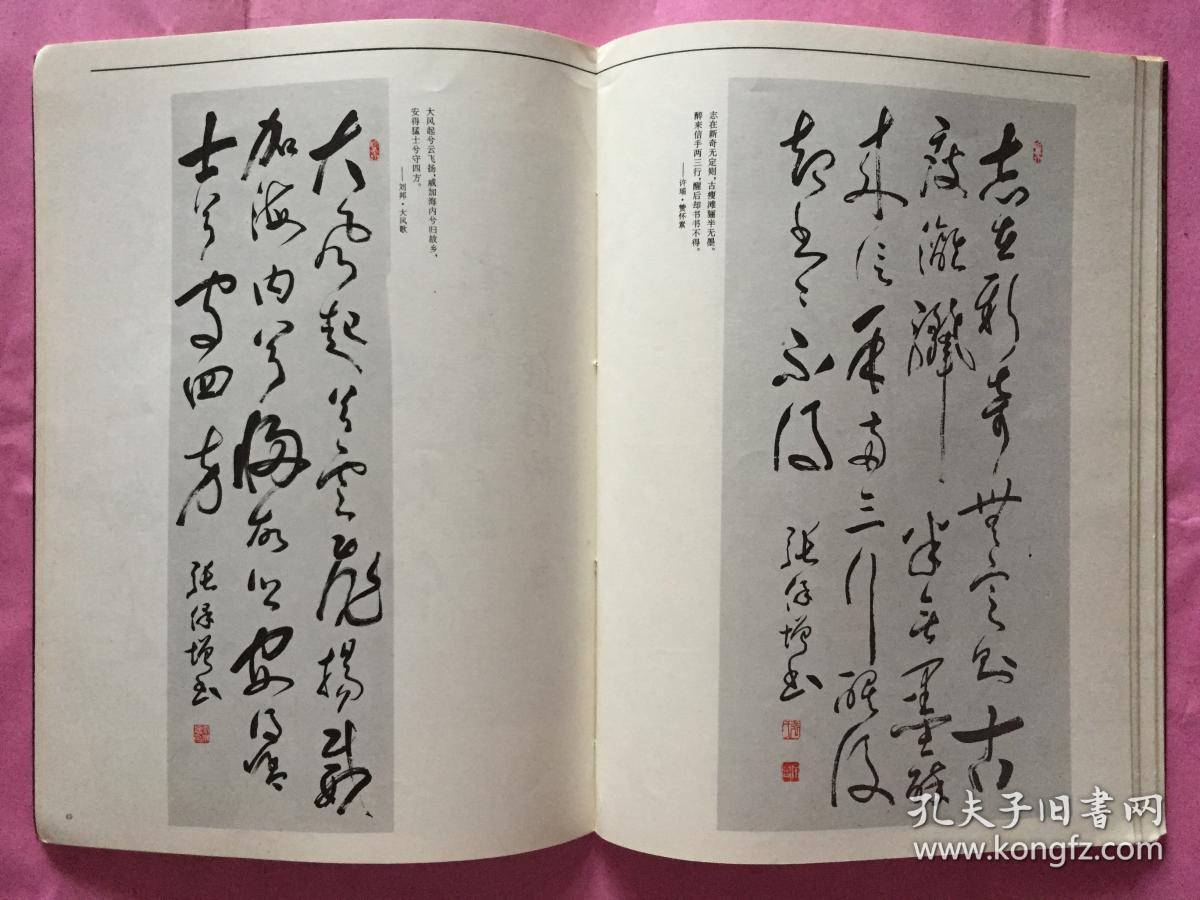 志在新奇無定則古
瘦灕纚半無墨醉
来信手两三行醒後
却书々不得
張保增书
志在新奇无定则，古瘦漓骊半无墨。
醉来信手两三行，醒后却书书不得。
——许瑶·赞怀素
大风起兮雲飛揚威
加海内兮歸故乡安得猛
士兮守四方
張保增书
大风起兮云飞扬，威加海内兮归故乡，
安得猛士兮守四方。
——刘邦·大风歌
孔夫子旧书网
www.kongfz.com